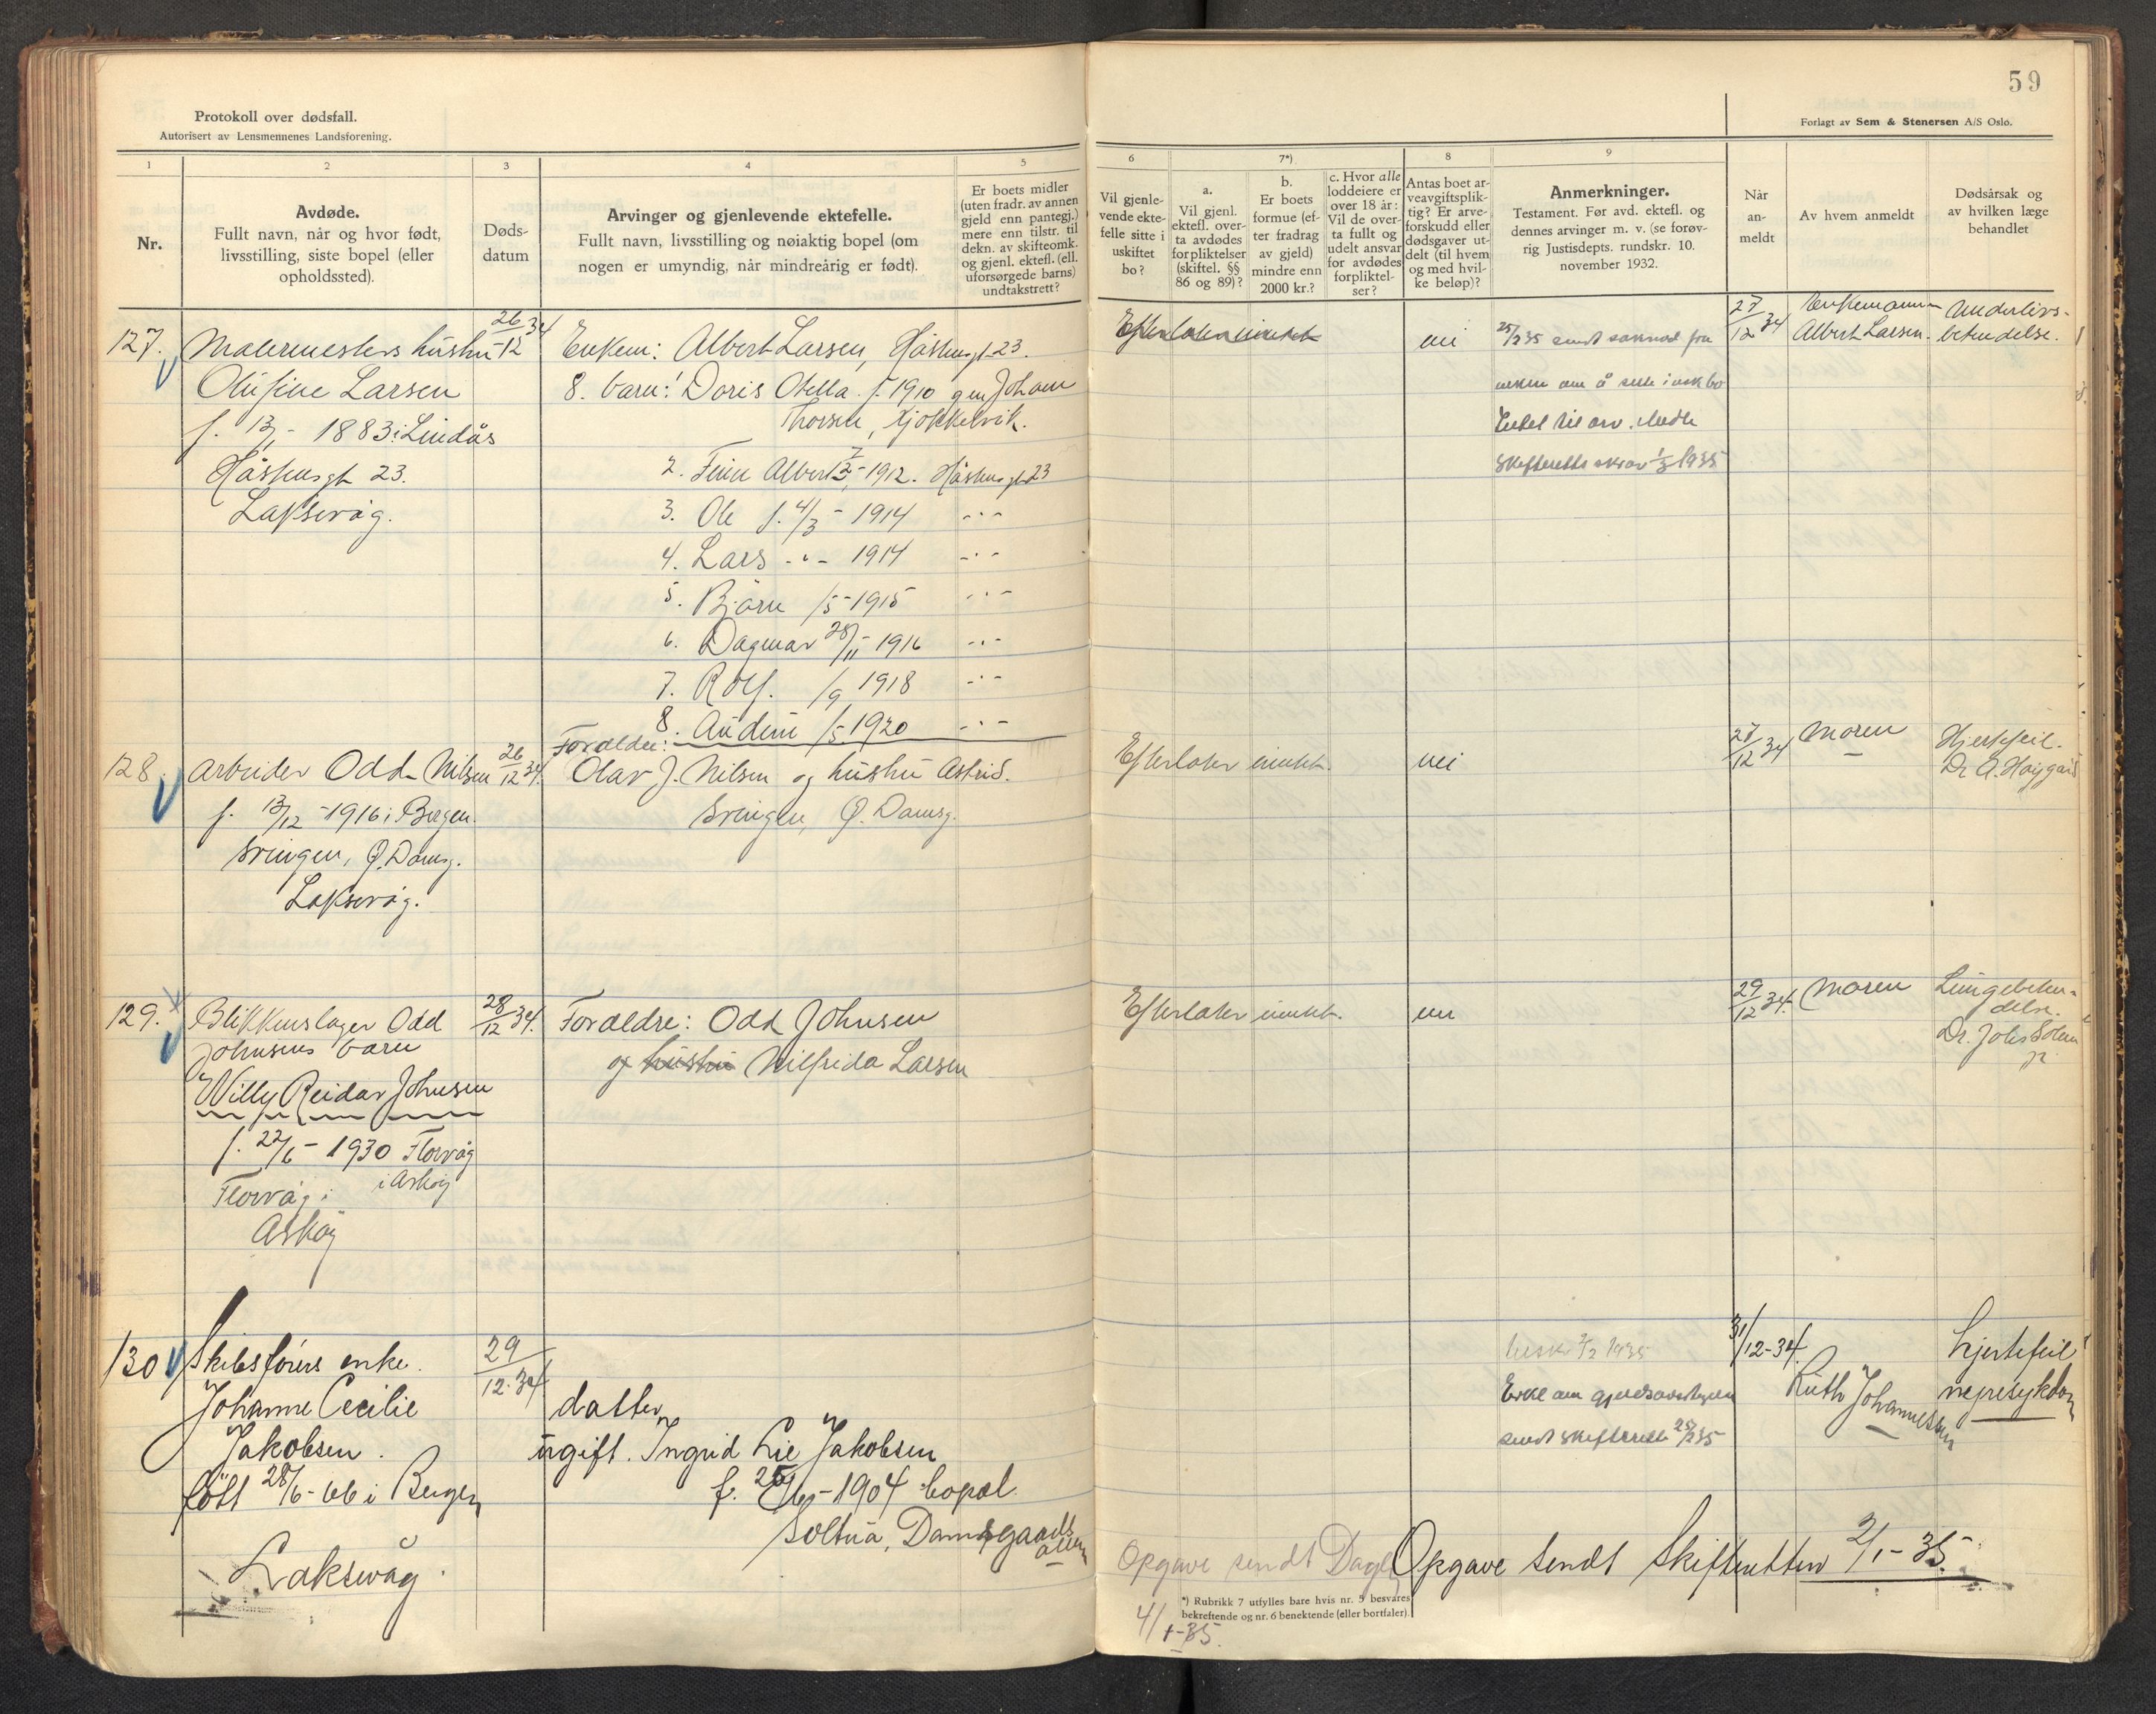 59
Protokoll over dødsfall.
Autorisert av Lensmennenes Landsforening.
Forlagt av Sem & Stenersen A/S Oslo.
1 2 3 4 5 6 7*) 8 9
Nr.
Avdøde.
Fullt navn, når og hvor født,
livsstilling, siste bopel (eller
opholdssted).
Døds-
datum
Arvinger og gjenlevende ektefelle.
Fullt navn, livsstilling og nøiaktig bopel (om
nogen er umyndig, når mindreårig er født).
Er boets midler
(uten fradr. av annen
gjeld enn pantegj.)
mere enn tilstr. til
dekn. av skifteomk.
og gjenl. ektefl. (ell.
uforsørgede barns)
undtakstrett?
Vil gjenle-
vende ekte-
felle sitte i
uskiftet
bo?
a.
Vil gjenl.
ektefl. over-
ta avdødes
forpliktelser
(skiftel. §§
86 og 89)?
b.
Er boets
formue (ef-
ter fradrag
av gjeld)
mindre enn
2000 kr.?
c. Hvor alle
loddeiere er
over 18 år:
Vil de over-
ta fullt og
udelt ansvar
for avdødes
forpliktel-
ser?
Antas boet ar-
veavgiftsplik-
tig? Er arve-
forskudd eller
dødsgaver ut-
delt (til hvem
og med hvil-
ke beløp)?
Anmerkninger.
Testament. Før avd. ektefl. og
dennes arvinger m. v. (se forøv-
rig Justisdepts. rundskr. 10.
november 1932.
Når
an-
meldt
Av hvem anmeldt
Dødsårsak og
av hvilken læge
behandlet
127. Malermesters hustru
Olufine Larsen
f. 13/1 - 1883 i Lindås
Håsteinsgt 23.
Laksevåg.
26/12 34
Enkem: Albert Larsen, Håsteinsgt 23.
8. barn: Doris Otella f. 1910 gm Johan
Thorsen, Kjøkkelvik.
2. Finn Albert 7/12 - 1912. Håsteinsgt 23
3. Ole f. 4/3 - 1914 -"-
4. Lars -"- 1914 -"-
5. Bjørn /5 - 1915 -"-
6. Dagmar 28/11 - 1916 -"-
7. Rolf. /9 1918 -"-
8. Audun /5 1920 -"-
Efterlater intet
nei
25/2 35 sendt søknad fra
enkem om å sitte i uskbo
Enkel til arv. Medk
skifteretts skriv 1/3 1935
27/12 34
Enkemann
Albert Larsen.
Underlivs-
betendelse.
128. Arbeider Odd Nilsen
f. 13/12 - 1916 i Bergen.
Svingen, Ø. Damsg.
Laksevåg.
26/12 34.
Foreldre:
Olav J. Nilsen og hustru Astrid.
Svingen, Ø. Damsg.
Efterlater intet.
nei
27/12 34
Moren
Hjertefeil.
Dr. A. Høygård
129. Blikkenslager Odd
Johnsens barn
Willy Reidar Johnsen
f. 22/6 - 1930 Florvåg
i Askøy
Florvåg i
Askøy
28/12 34.
Foreldre: Odd Johnsen
og hustru Wilfrida Larsen
Efterlater intet.
nei
29/12 34.
Moren
Lungebeten-
delse.
Dr. Johs Solem
jr.
130 Skibsførers enke.
Johanne Cecilie
Jakobsen.
født 28/6 - 66 i Bergen
Laksevåg
29/12-34
datter
ugift. Ingrid Lie Jakobsen
f. 25/6 - 1904 bopæl
Soltua, Damsgaards
alleen
2/2 1935
Erkl om gjeldsovertagelse
sendt skifteretten 25/2 35
31/12-34.
Ruth Johannessen
hjertefeil
nyresykdom
Opgave sendt Skifteretten 2/1-35.
Opgave sendt
4/1-35.
*) Rubrikk 7 utfylles bare hvis nr. 5 besvares
bekreftende og nr. 6 benektende (eller bortfaler).